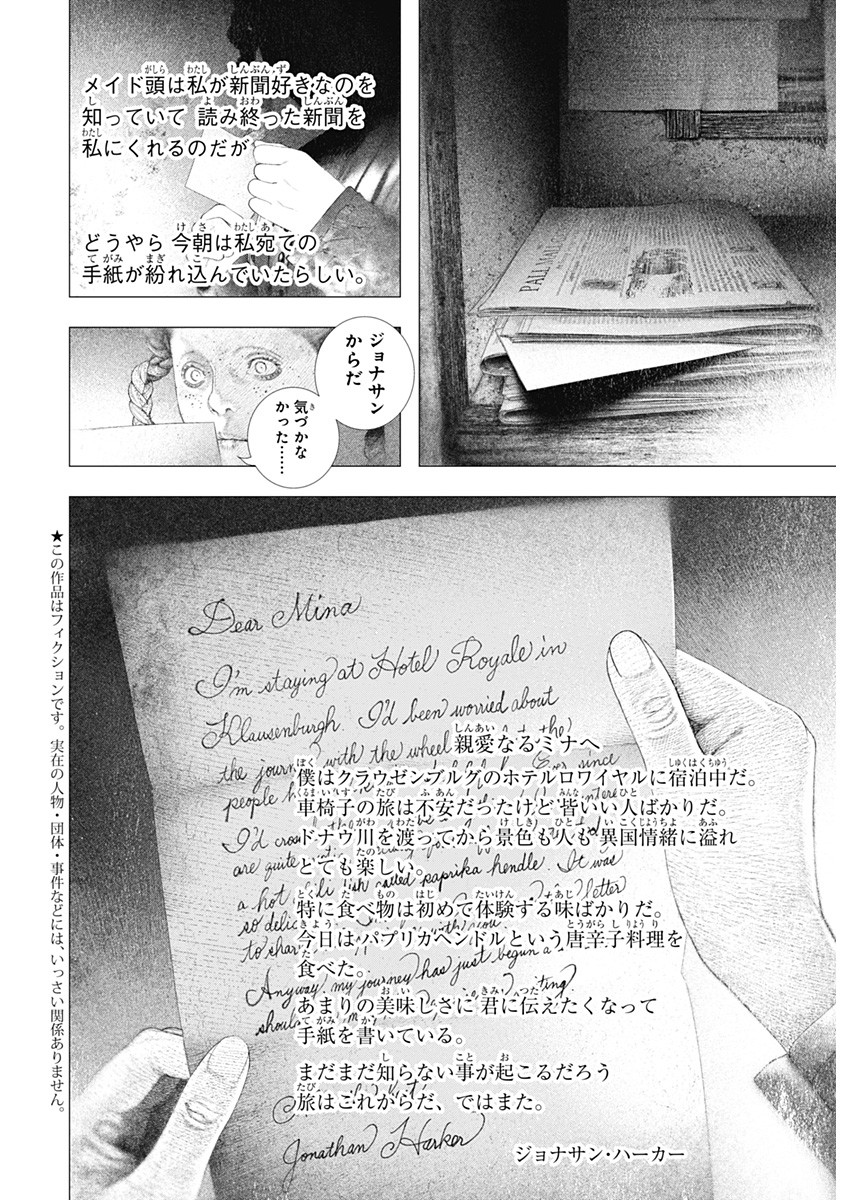 PALL MALL GAZ
メイド頭は私が新聞好きなのを
知っていて 読み終った新聞を
私にくれるのだが
どうやら 今朝は私宛ての
手紙が紛れ込んでいたらしい。
ジョナサン
からだ
気づかな
かった……
Dear Mina
I'm staying at Hotel Royale in
Klausenburgh. I'd been worried about
the journey with the wheel
people
since
I'd
are quite
a hot called paprika hendle. It was
so letter
to with you
Anyway, my journey has just begun a
should writing.
Jonathan Harker
親愛なるミナへ
僕はクラウゼンブルグのホテルロワイヤルに宿泊中だ。
車椅子の旅は不安だったけど 皆いい人ばかりだ。
ドナウ川を渡ってから景色も人も異国情緒に溢れ
とても楽しい。
特に食べ物は初めて体験する味ばかりだ。
今日はパプリカヘンドルという唐辛子料理を
食べた。
あまりの美味しさに 君に伝えたくなって
手紙を書いている。
まだまだ知らない事が起こるだろう
旅はこれからだ、ではまた。
ジョナサン・ハーカー
★この作品はフィクションです。実在の人物・団体・事件などには、いっさい関係ありません。